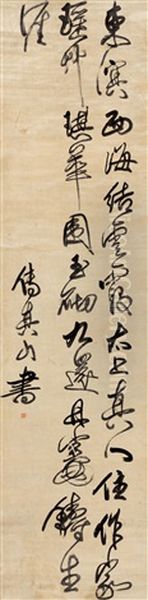 東溟西海結雲霞太上真人住作家
瑤草琪華圍玉砌九還丹竈鑄生
涯
傅真山書